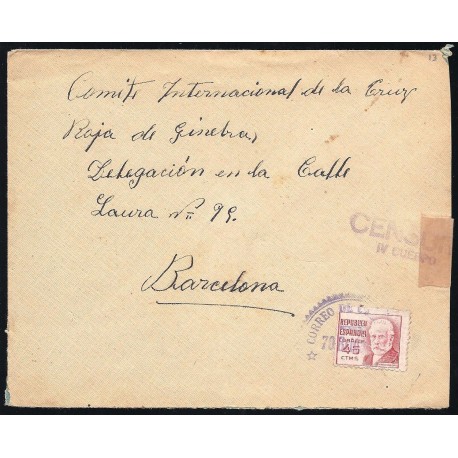 Comite Internacional de la Cruz
Roja de Ginebra,
Delegación en la Calle
Laura Nº 95.
Barcelona
CENSU
IV CUERPO
CORREO DE C
REPUBLICA
ESPAÑOLA
45
CTMS